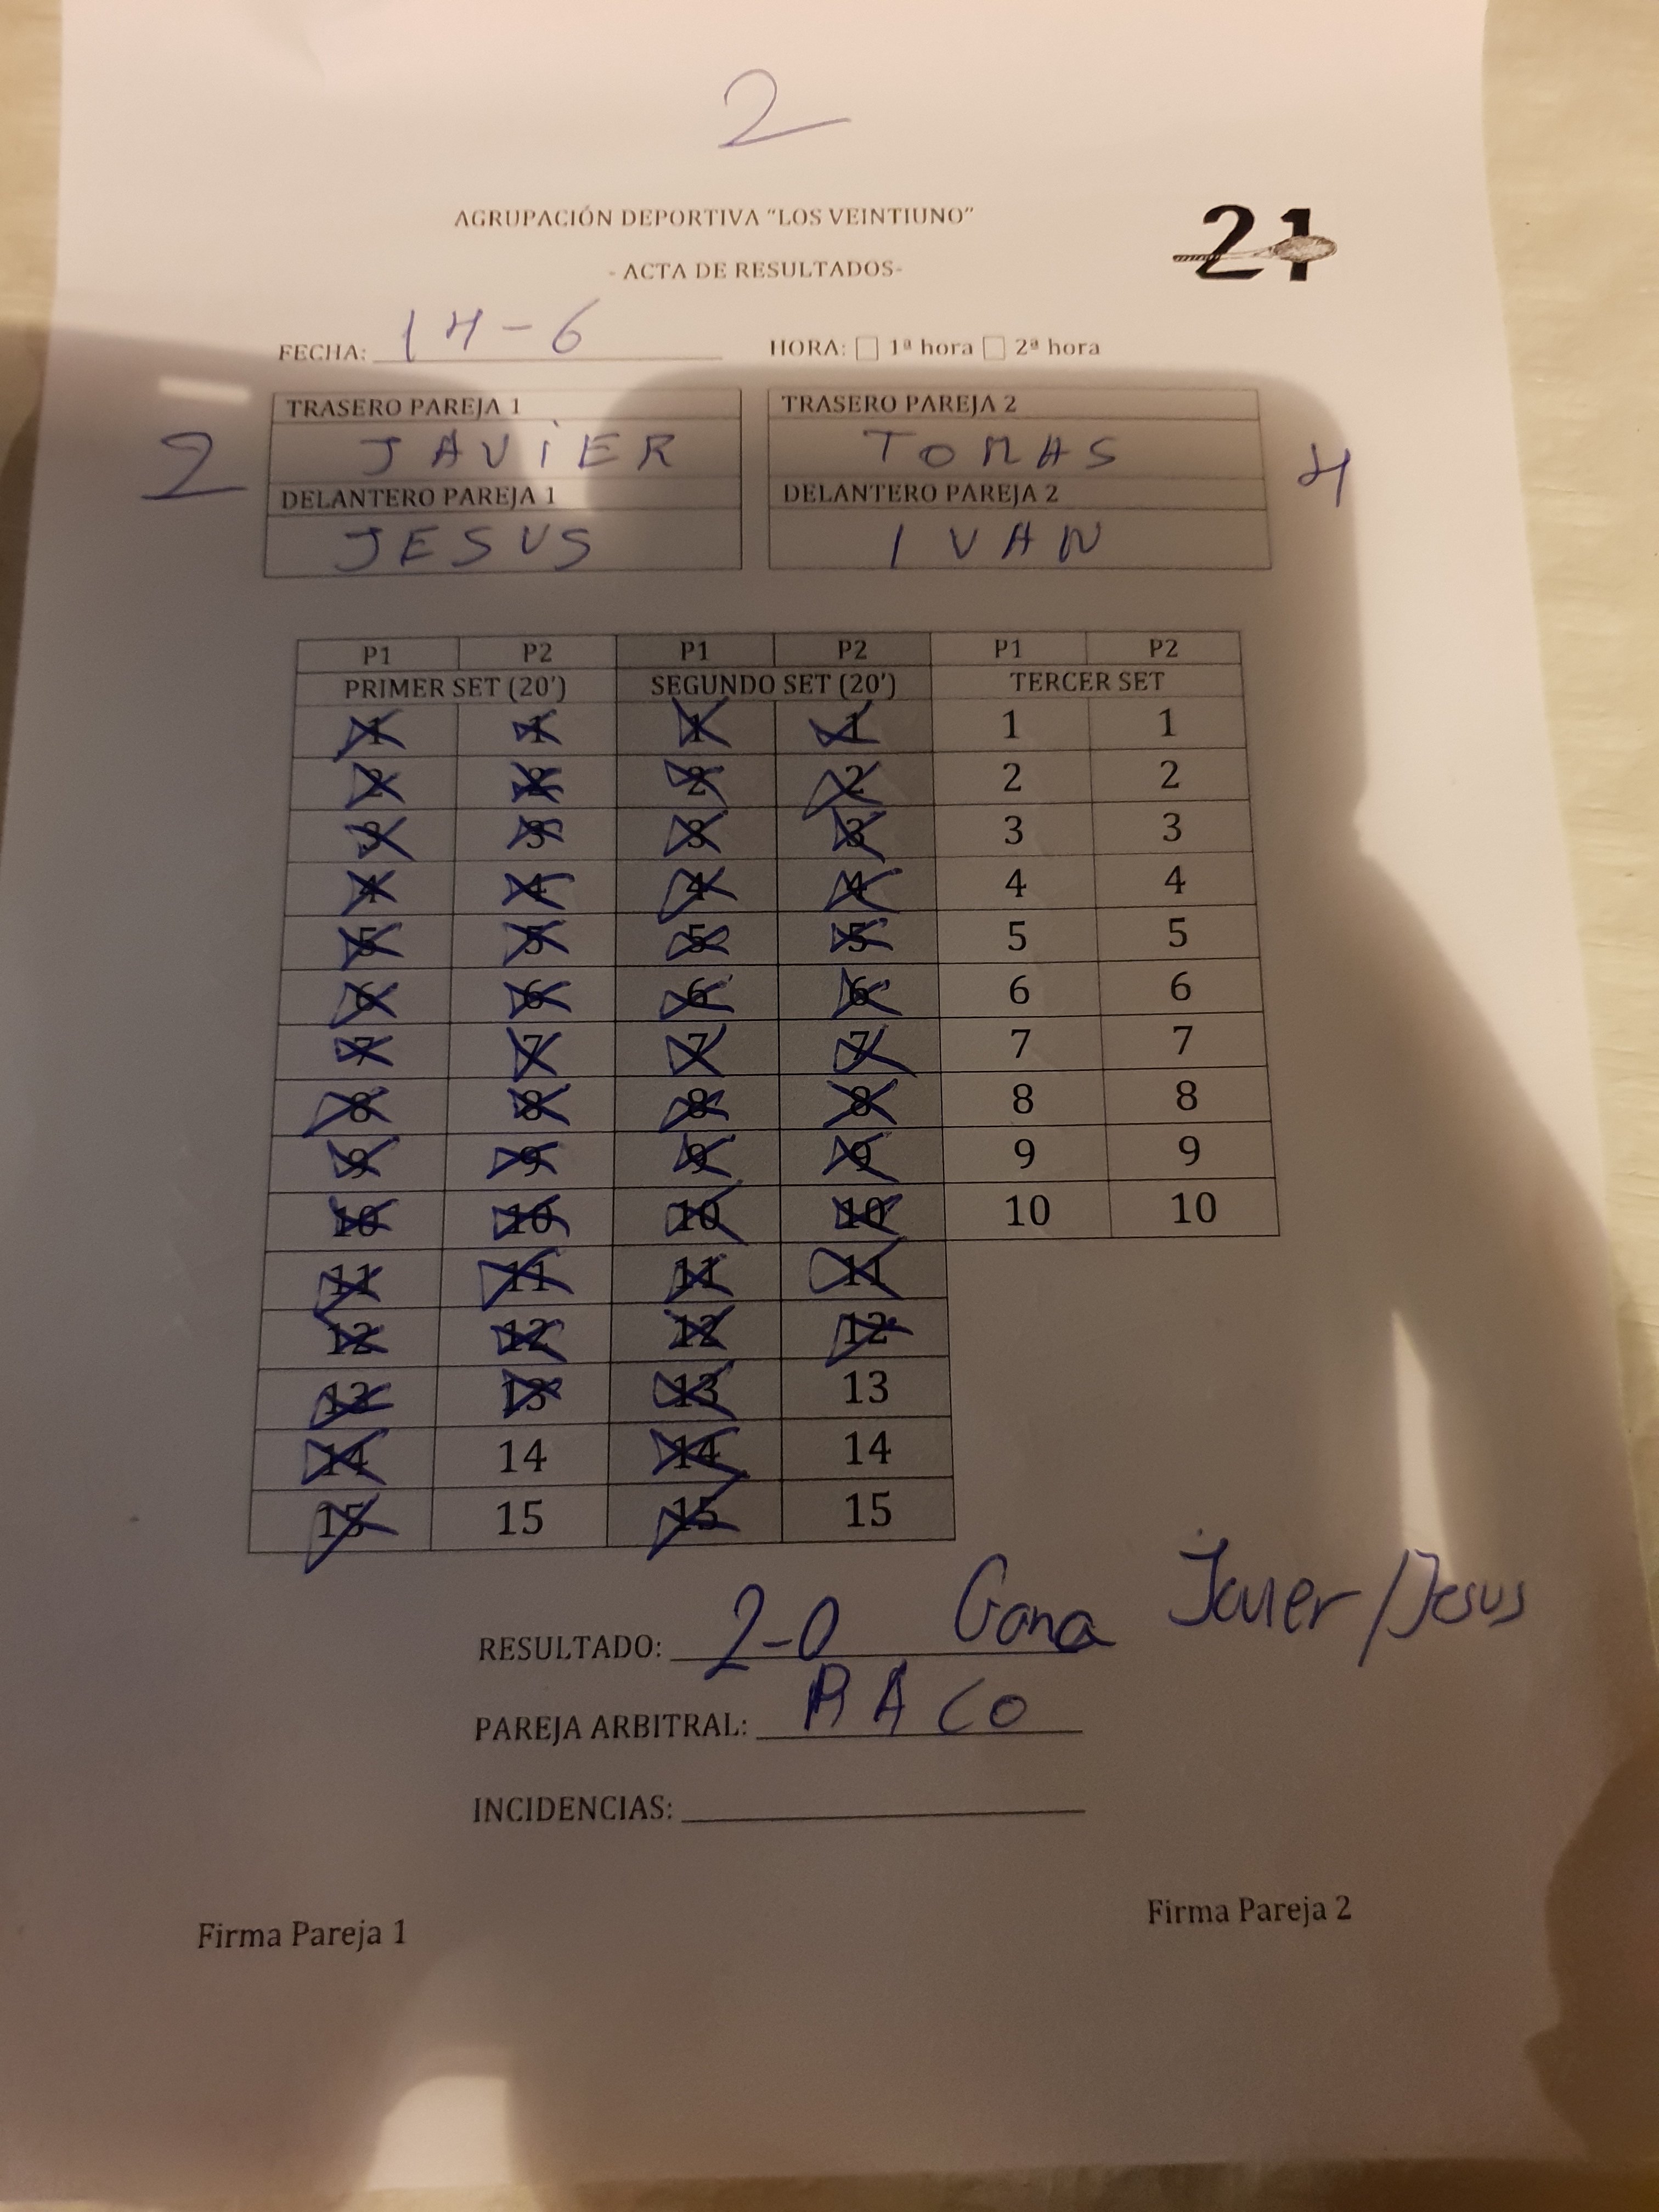 2
AGRUPACIÓN DEPORTIVA "LOS VEINTIUNO"
21
- ACTA DE RESULTADOS-
FECHA: 14-6 HORA: 1ª hora 2ª hora
TRASERO PAREJA 1 TRASERO PAREJA 2
2 JAViER TOMAS 4
DELANTERO PAREJA 1 DELANTERO PAREJA 2
JESUS IVAN
P1 P2 P1 P2 P1 P2
PRIMER SET (20') SEGUNDO SET (20') TERCER SET
1 1 1 1 1 1
2 2 2 2 2 2
3 3 3 3 3 3
4 4 4 4 4 4
5 5 5 5 5 5
6 6 6 6 6 6
7 7 7 7 7 7
8 8 8 8 8 8
9 9 9 9 9 9
10 10 10 10 10 10
11 11 11 11
12 12 12 12
13 13 13 13
14 14 14 14
15 15 15 15
RESULTADO: 2-0 Gana Javier/Jesus
PAREJA ARBITRAL:
INCIDENCIAS:
Firma Pareja 1 Firma Pareja 2